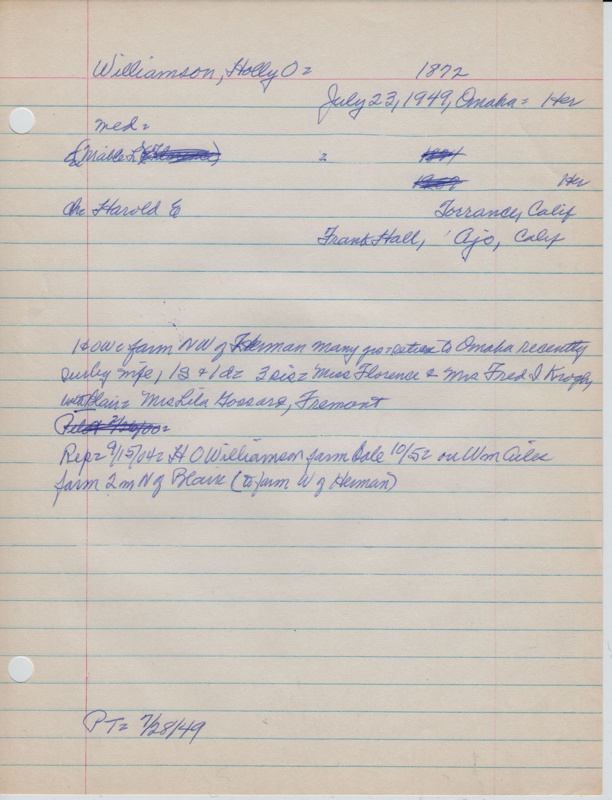 Williamson, Holly O = 1872
July 23, 1949, Omaha = Her
med =
Mable L =
Her
Ch Harold E Torrance, Calif
Frank Hall, Ajo, Calif
H O W farm NW of Herman many yrs = to Omaha recently
surby wife, 1S & 1d = 3 sis = Miss Florence & Mrs Fred I Krogh,
both Blair = Mrs Lila Gossard, Fremont
Rep = 9/15/04 = H O Williamson farm Sale 10/5 = on Wm
farm 2 m N of Blair (to farm W of Herman)
PT = 7/28/49